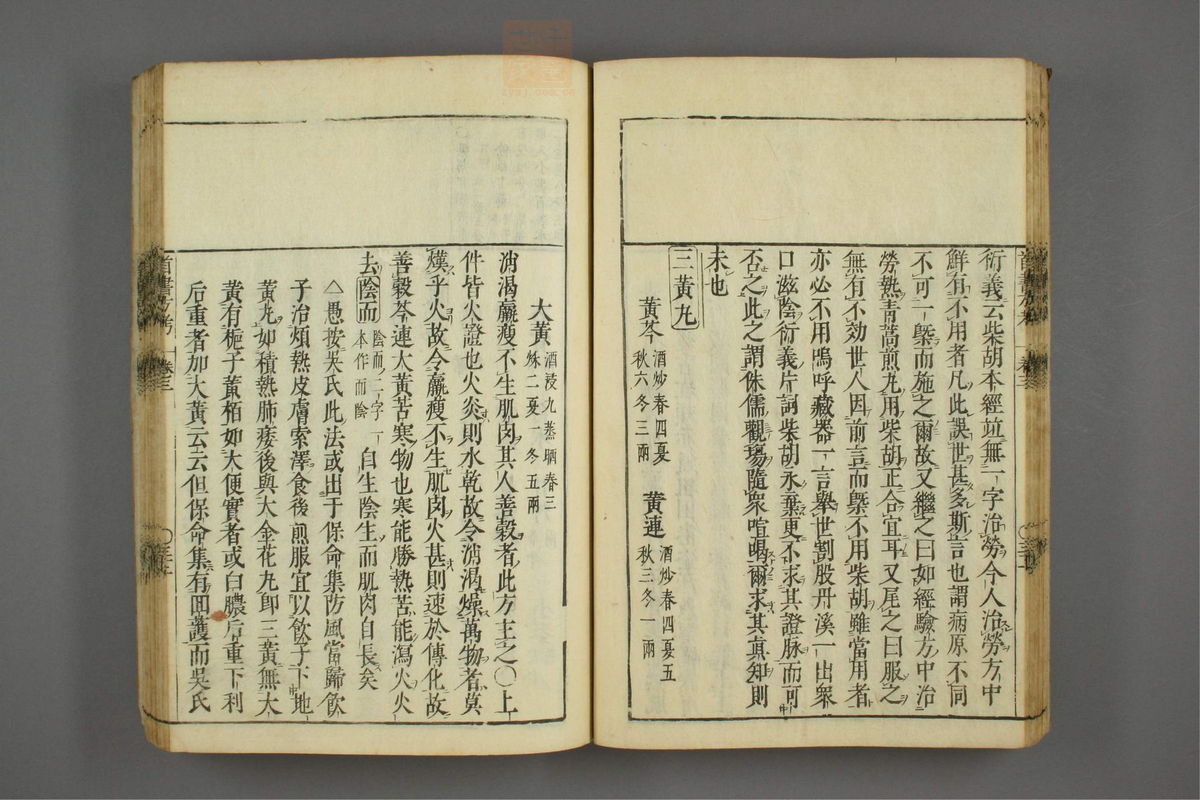 衍義云柴胡本經並無一字治勞今人治勞方中
鮮有不用者凡此誤世甚多斯言也謂病原不同
不可一槩而施之爾故又繼之曰如經驗方中治
勞熱青蒿煎丸用柴胡正合宜耳又尾之曰服之
無有不効世人因前言而槩不用柴胡雖當用者
亦必不用嗚呼藏器一言舉世割股丹溪一出衆
口滋陰衍義片詞柴胡永棄更不求其證脉而可
否之此之謂侏儒觀場隨衆喧喝爾求其真知則
未也
三黃丸
黃芩 酒炒春四夏
秋六冬三兩
黃連 酒炒春四夏五
秋三冬一兩
大黃 酒浸九蒸晒春三
秌二夏一冬五兩
消渴羸瘦不生肌肉其人善穀者此方主之○上
件皆火證也火炎則水乾故令消渴燥萬物者莫
熯乎火故令羸瘦不生肌肉火甚則速於傳化故
善穀芩連大黃苦寒物也寒能勝熱苦能瀉火火
去陰而 陰而二字一
本作而陰
自生陰生而肌肉自長矣
△愚按吳氏此法或出于保命集防風當歸飲
子治煩熱皮膚索澤食後煎服宜以飲子下地
黃丸如積熱肺痿後與大金花丸即三黃無大
黃有梔子黃栢如大便實者或白膿后重下利
后重者加大黃云云但保命集有回護而吳氏